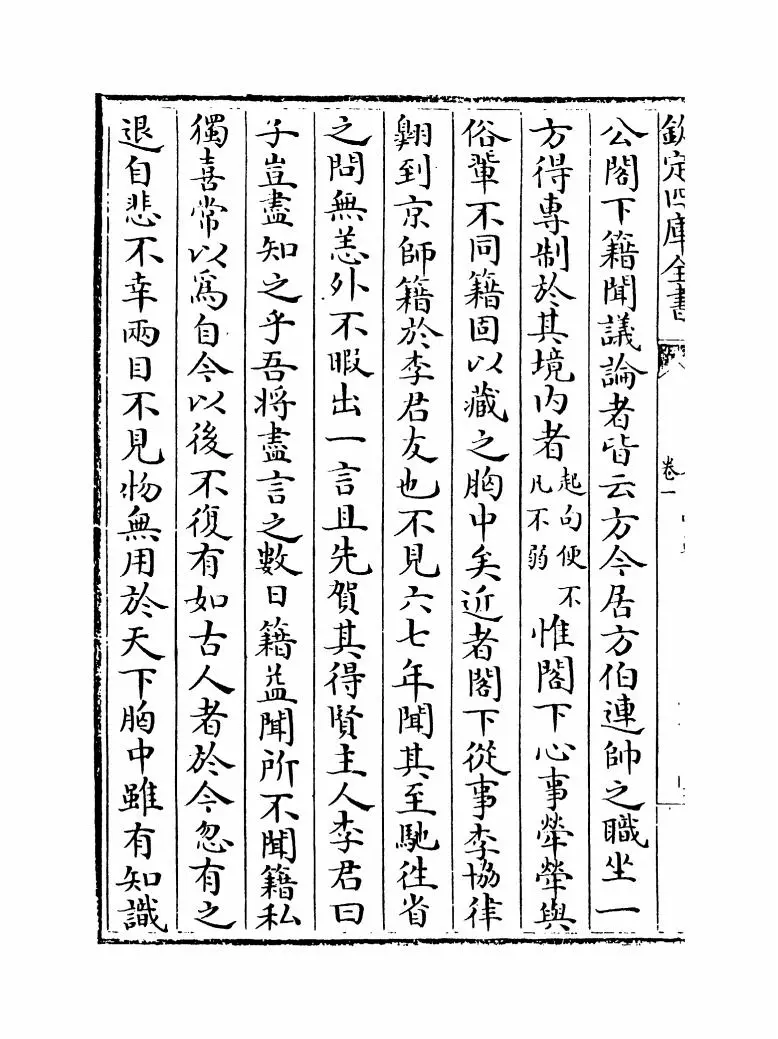 欽定四庫全書
卷一
公閣下籍聞議論者皆云方今居方伯連帥之職坐一
方得專制於其境内者起句便不凡不弱惟閣下心事犖犖與
俗輩不同籍固以藏之胸中矣近者閣下從事李協律
翺到京師籍於李君友也不見六七年聞其至馳往省
之問無恙外不暇出一言且先賀其得賢主人李君曰
子豈盡知之乎吾將盡言之數日籍益聞所不聞籍私
獨喜常以爲自今以後不復有如古人者於今忽有之
退自悲不幸兩目不見物無用於天下胸中雖有知識